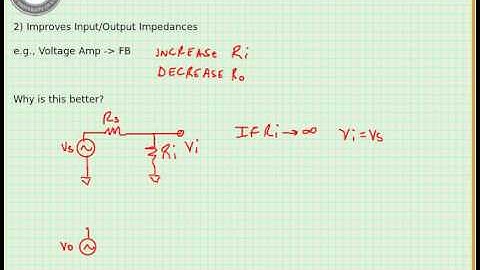 2) Improves Input/Output Impedances
e.g., Voltage Amp -> FB INCREASE Ri
DECREASE Ro
Why is this better?
Rs
IF Ri → ∞ Vi = Vs
Vs Ri Vi
Vo